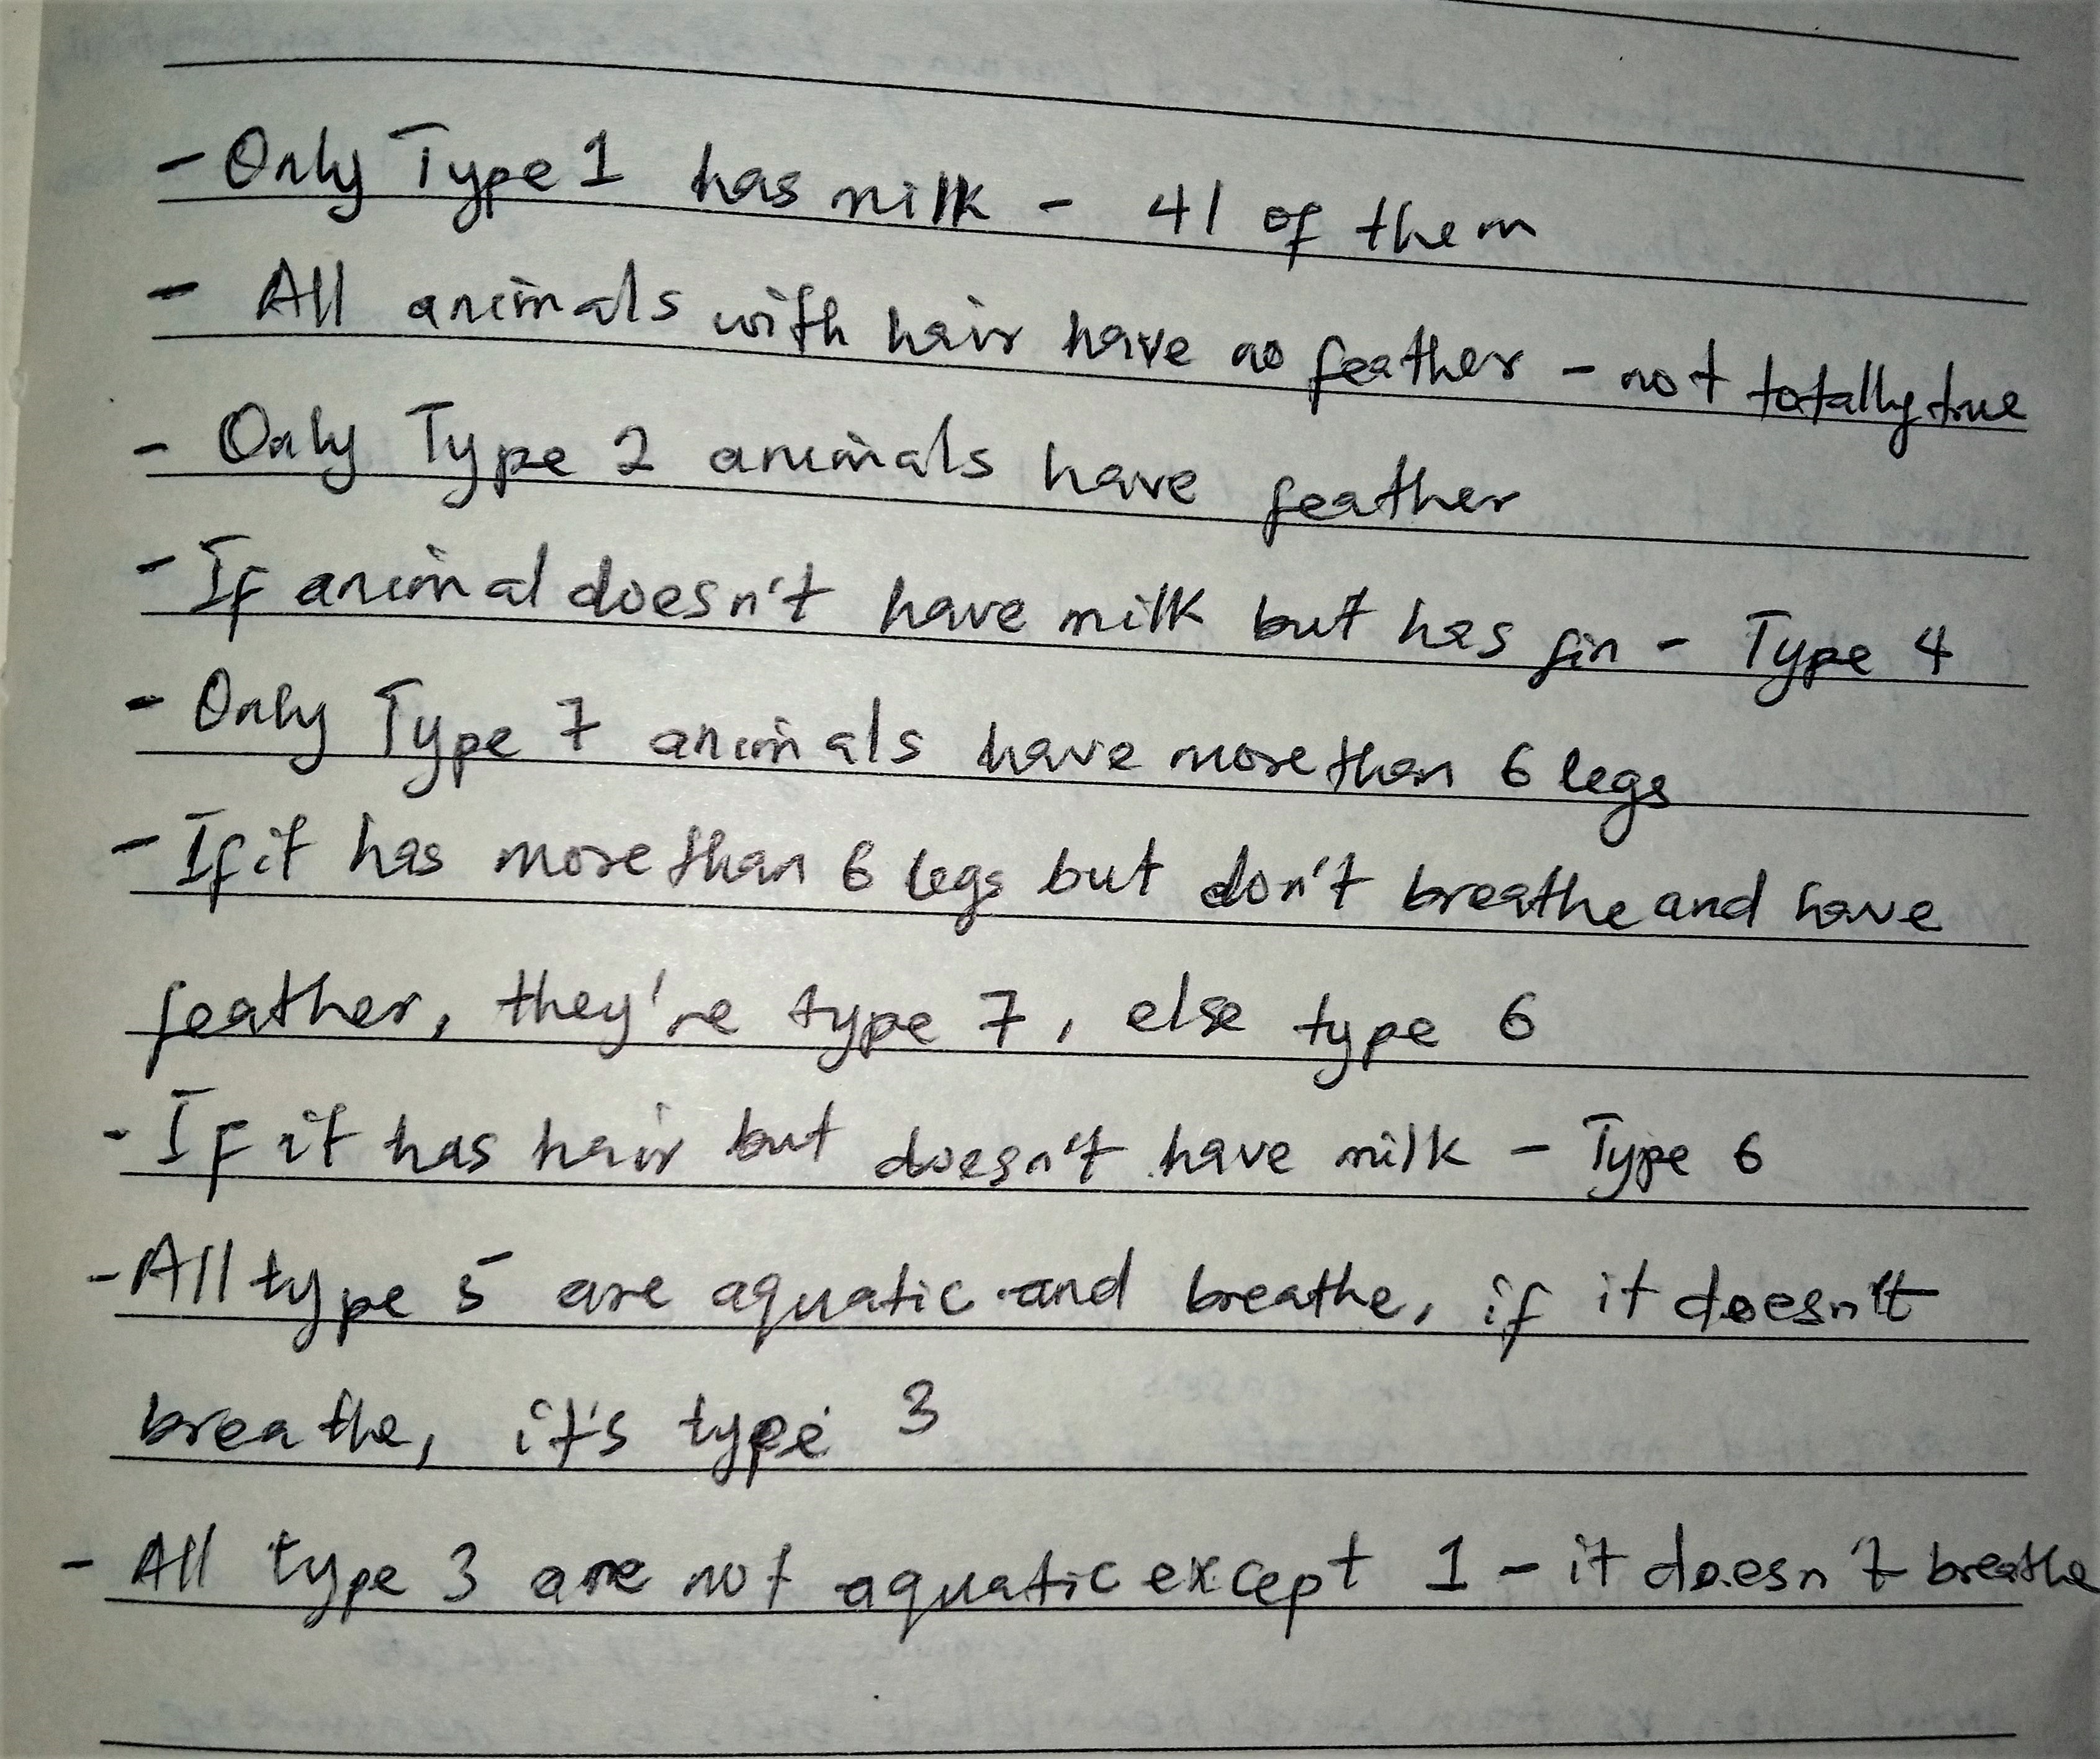 - Only Type 1 has milk - 41 of them
- All animals with hair have no feather - not totally true
- Only Type 2 animals have feather
- If animal doesn't have milk but has fin - Type 4
- Only Type 7 animals have more than 6 legs
- If it has more than 6 legs but don't breathe and have
feather, they're type 7, else type 6
- If it has hair but doesn't have milk - Type 6
- All type 5 are aquatic and breathe, if it doesn't
breathe, it's type 3
- All type 3 are not aquatic except 1 - it doesn't breathe